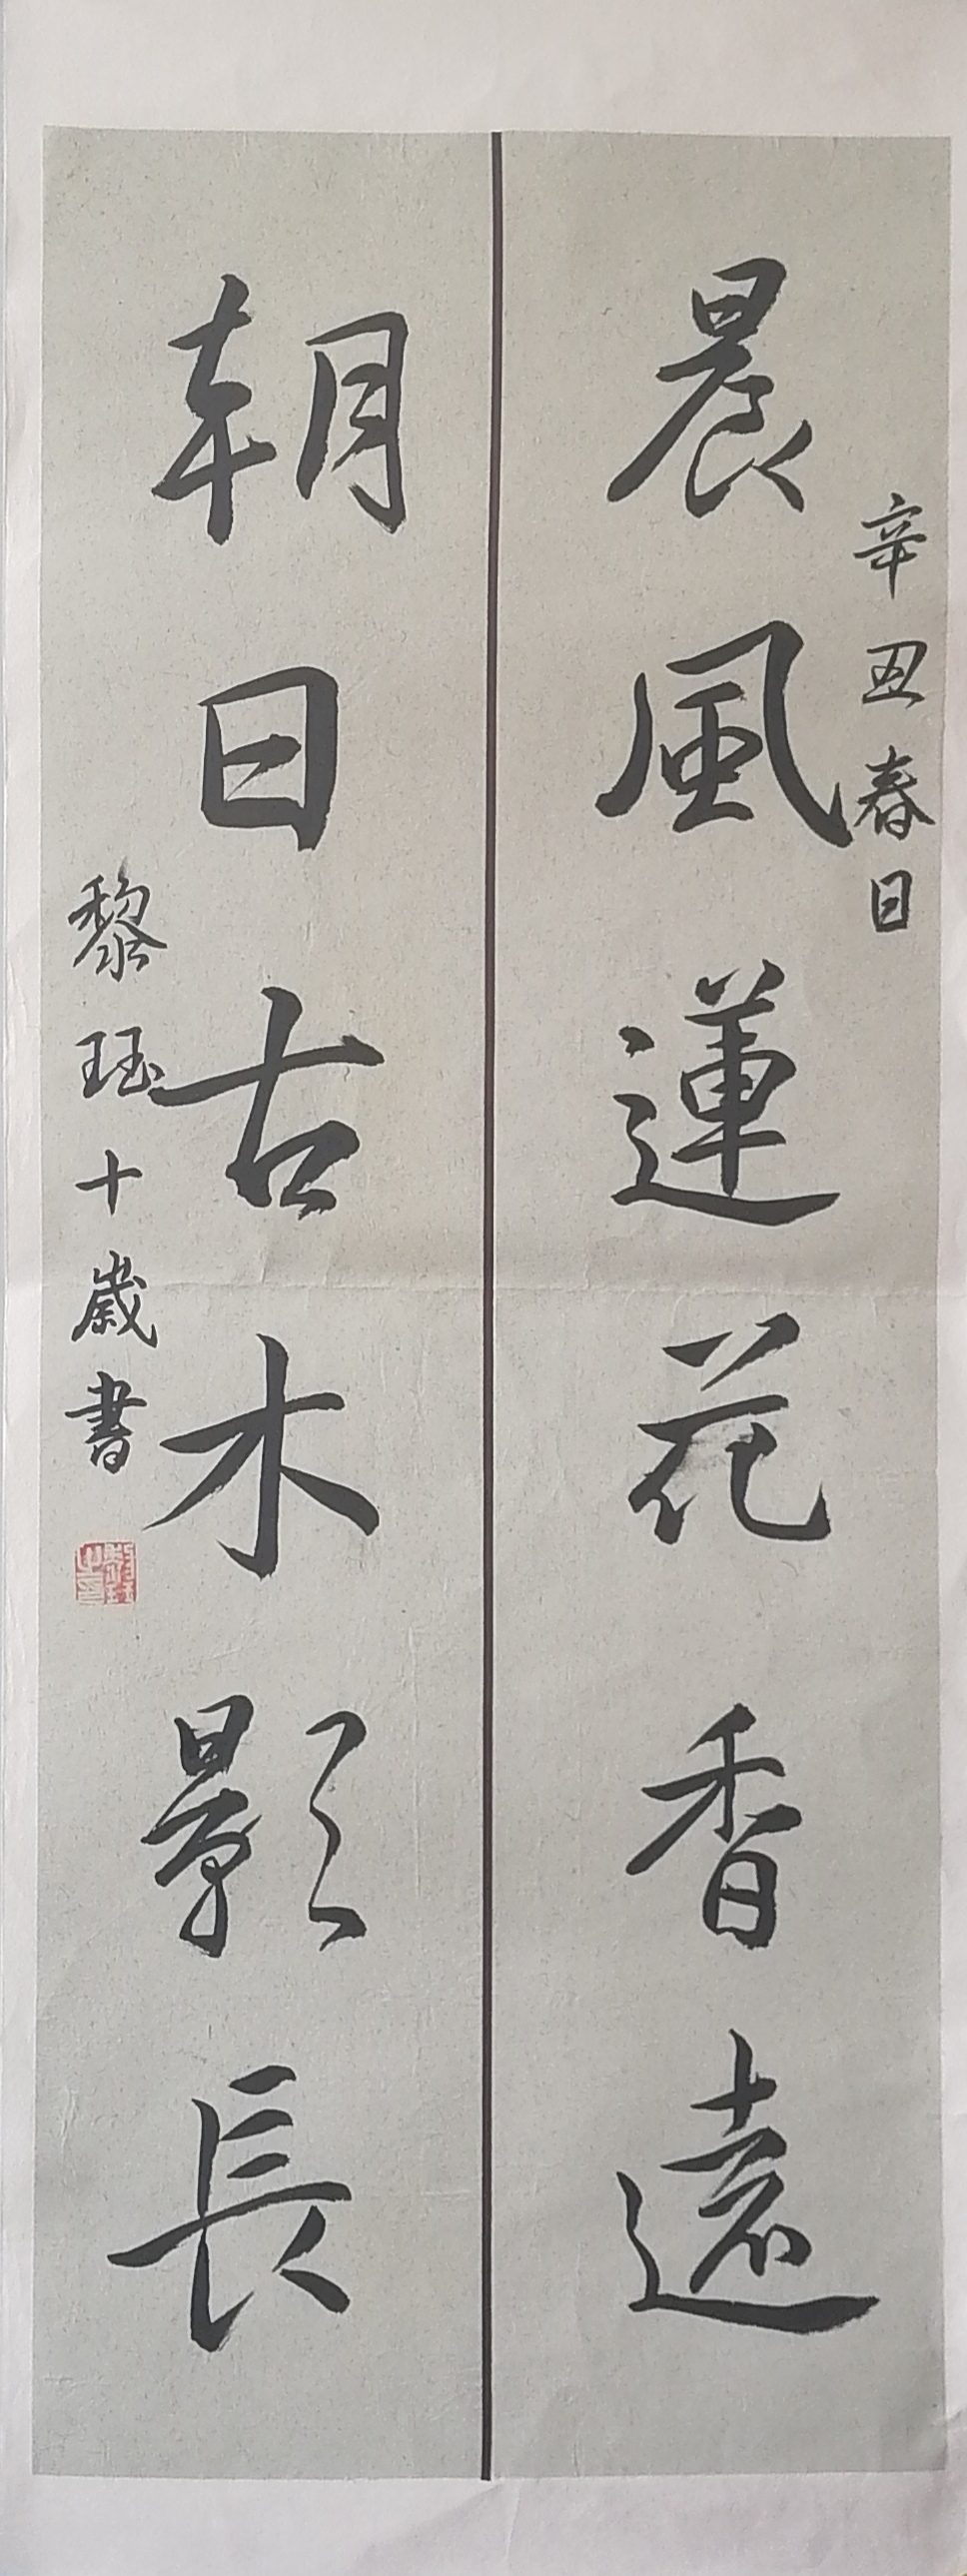 辛丑春日
晨風蓮花香遠
朝日古木影長
黎珏十歲書